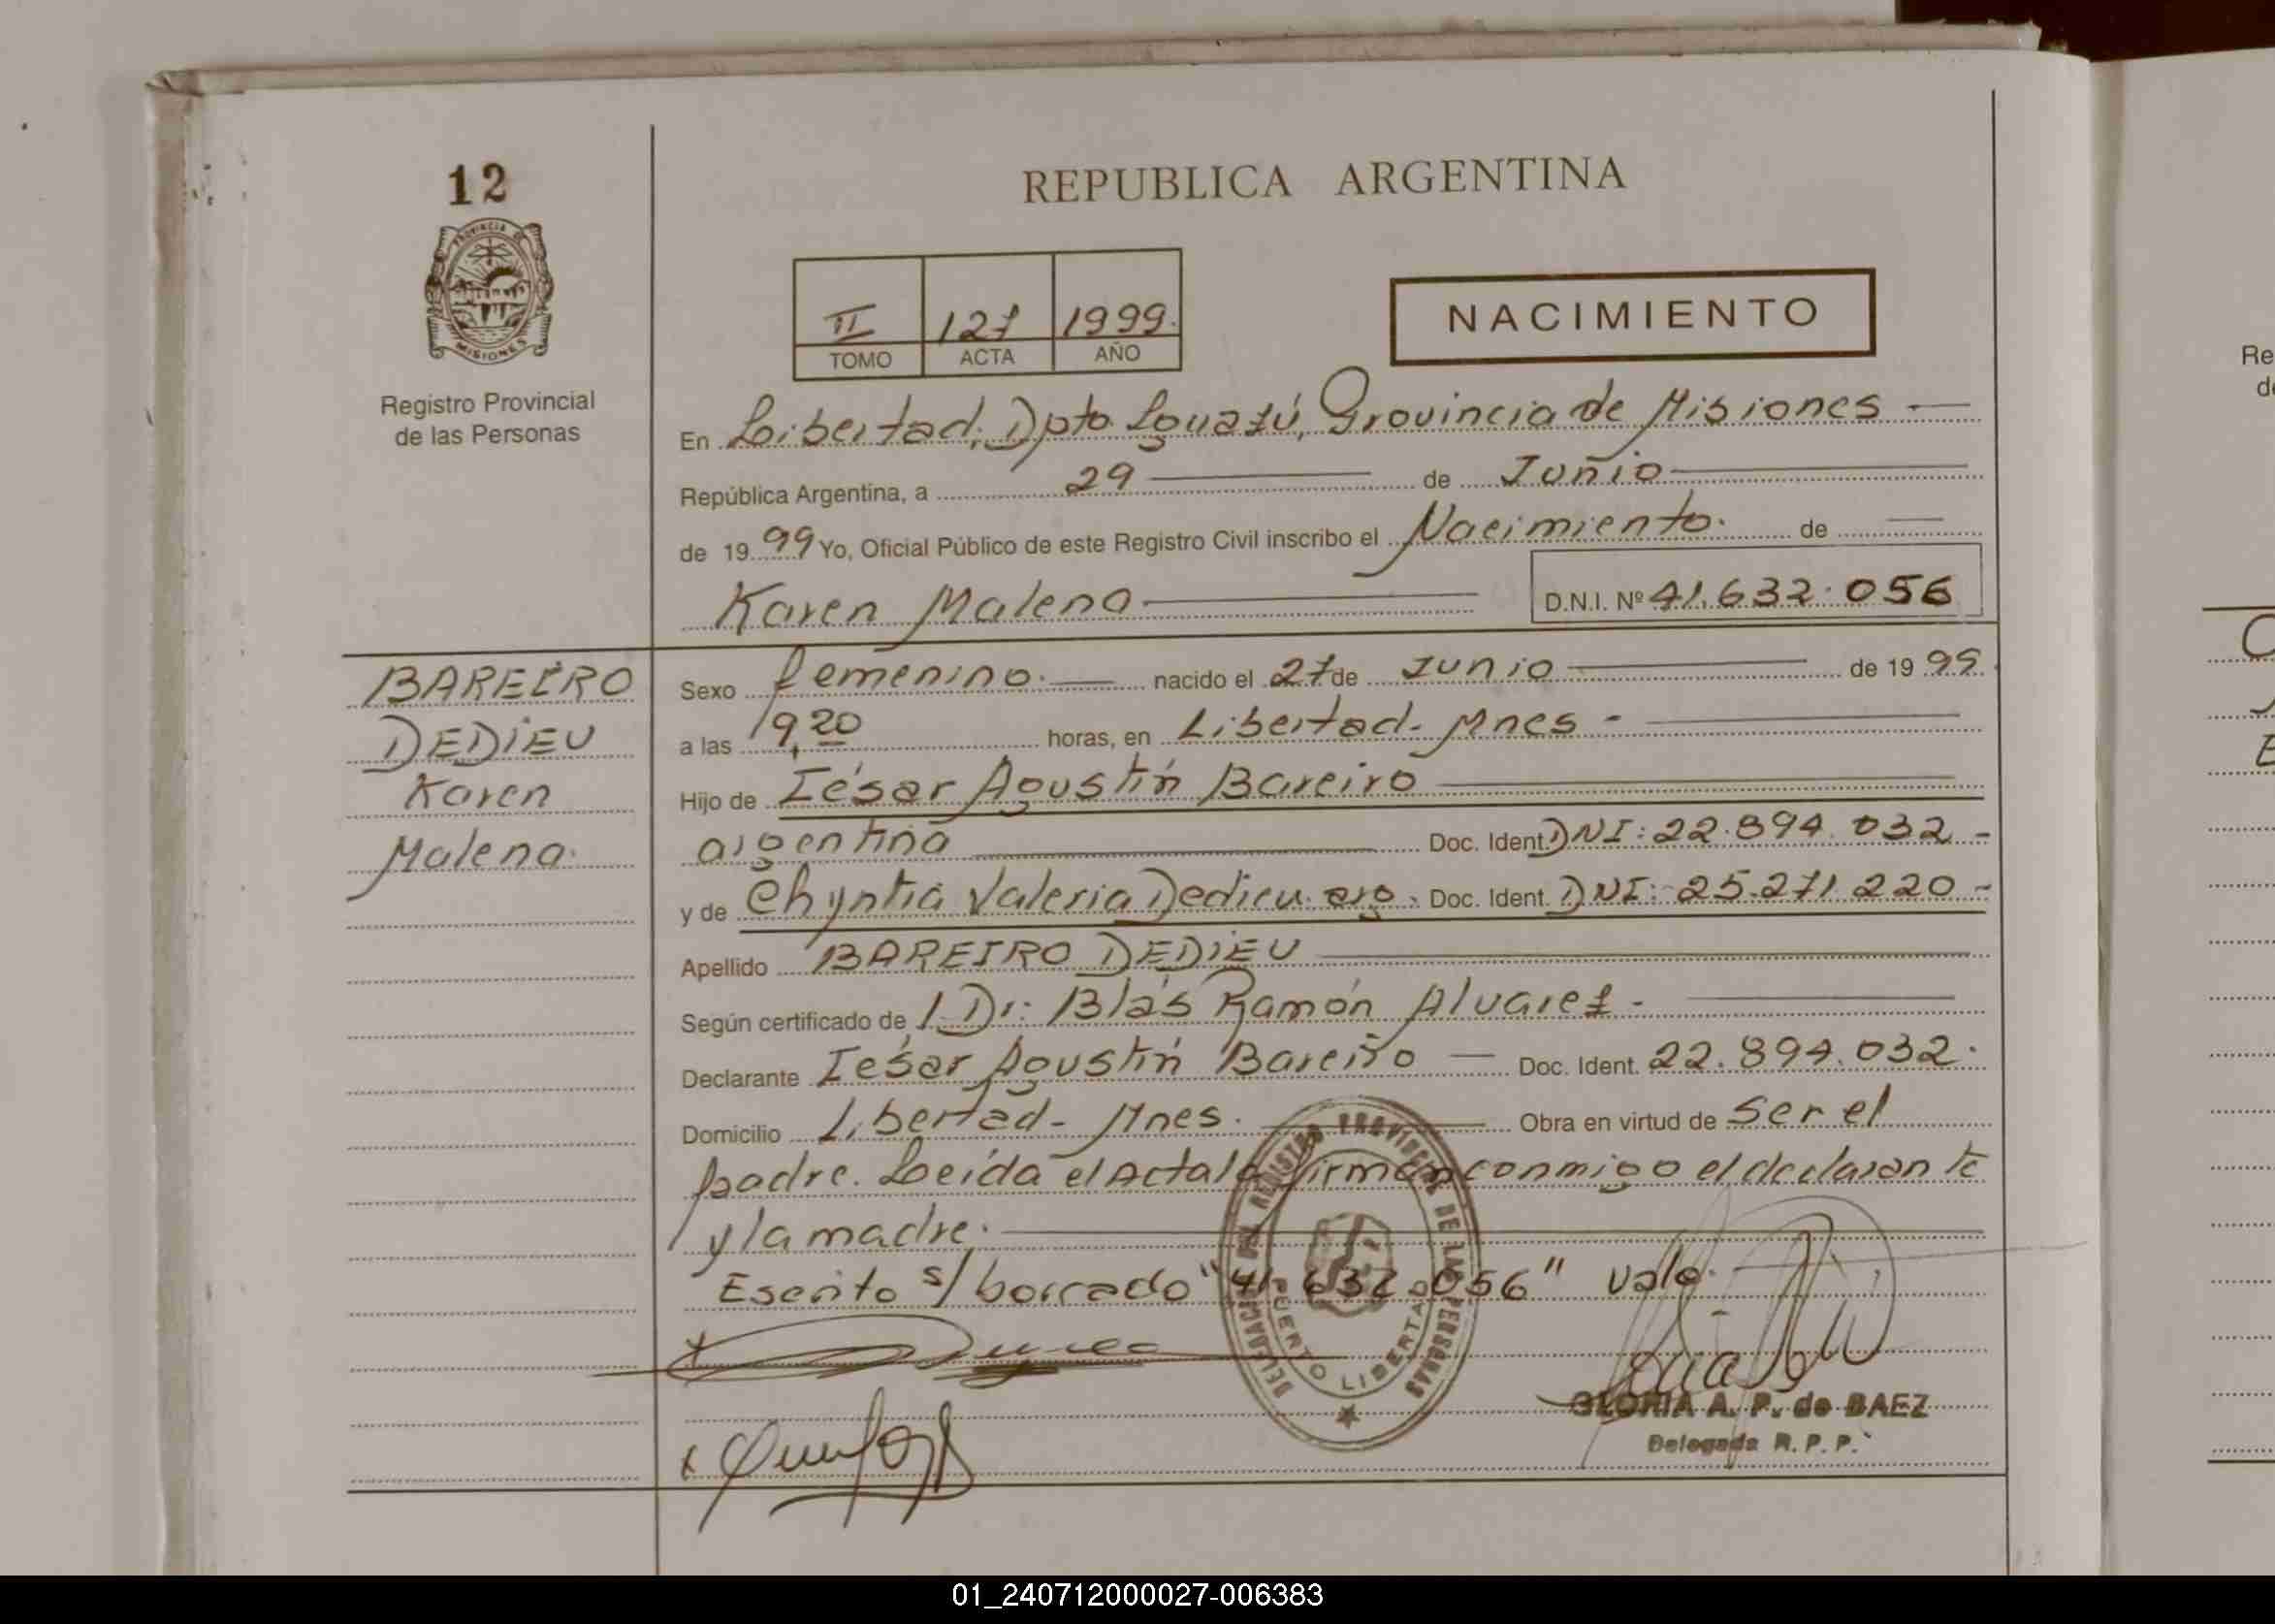 12
PROVINCIA DE
MISIONES
Registro Provincial
de las Personas
REPUBLICA ARGENTINA
II 127 1999.
TOMO ACTA AÑO
NACIMIENTO
En Libertad, Dpto. Iguazú, Provincia de Misiones —
República Argentina, a 29 — de Junio —
de 19 99 Yo, Oficial Público de este Registro Civil inscribo el Nacimiento. de —
Karen Malena — D.N.I. Nº 41.632.056
BAREIRO
DEDIEU
Karen
Malena.
Sexo femenino. — nacido el 27 de Junio — de 19 99.
a las 19,20 horas, en Libertad - Mnes - —
Hijo de César Agustín Bareiro —
argentina — Doc. Ident. DNI: 22.894.032 -
y de Chyntia Valeria Dedieu. arg. Doc. Ident. DNI: 25.271.220 -
Apellido BAREIRO DEDIEU —
Según certificado de 1 Dr: Blás Ramón Alvarez - —
Declarante César Agustín Bareiro — Doc. Ident. 22.894.032.
Domicilio Libertad - Mnes. — Obra en virtud de ser el
padre. Leída el Acta la firman conmigo el declarante
y la madre. —
Escrito s/ borrado "41 632 056" vale. —
DELEGACION DEL REGISTRO PROVINCIAL DE LAS PERSONAS
PUERTO LIBERTAD
GLORIA A. P. de BAEZ
Delegada R. P. P.
Re
de
01_240712000027-006383